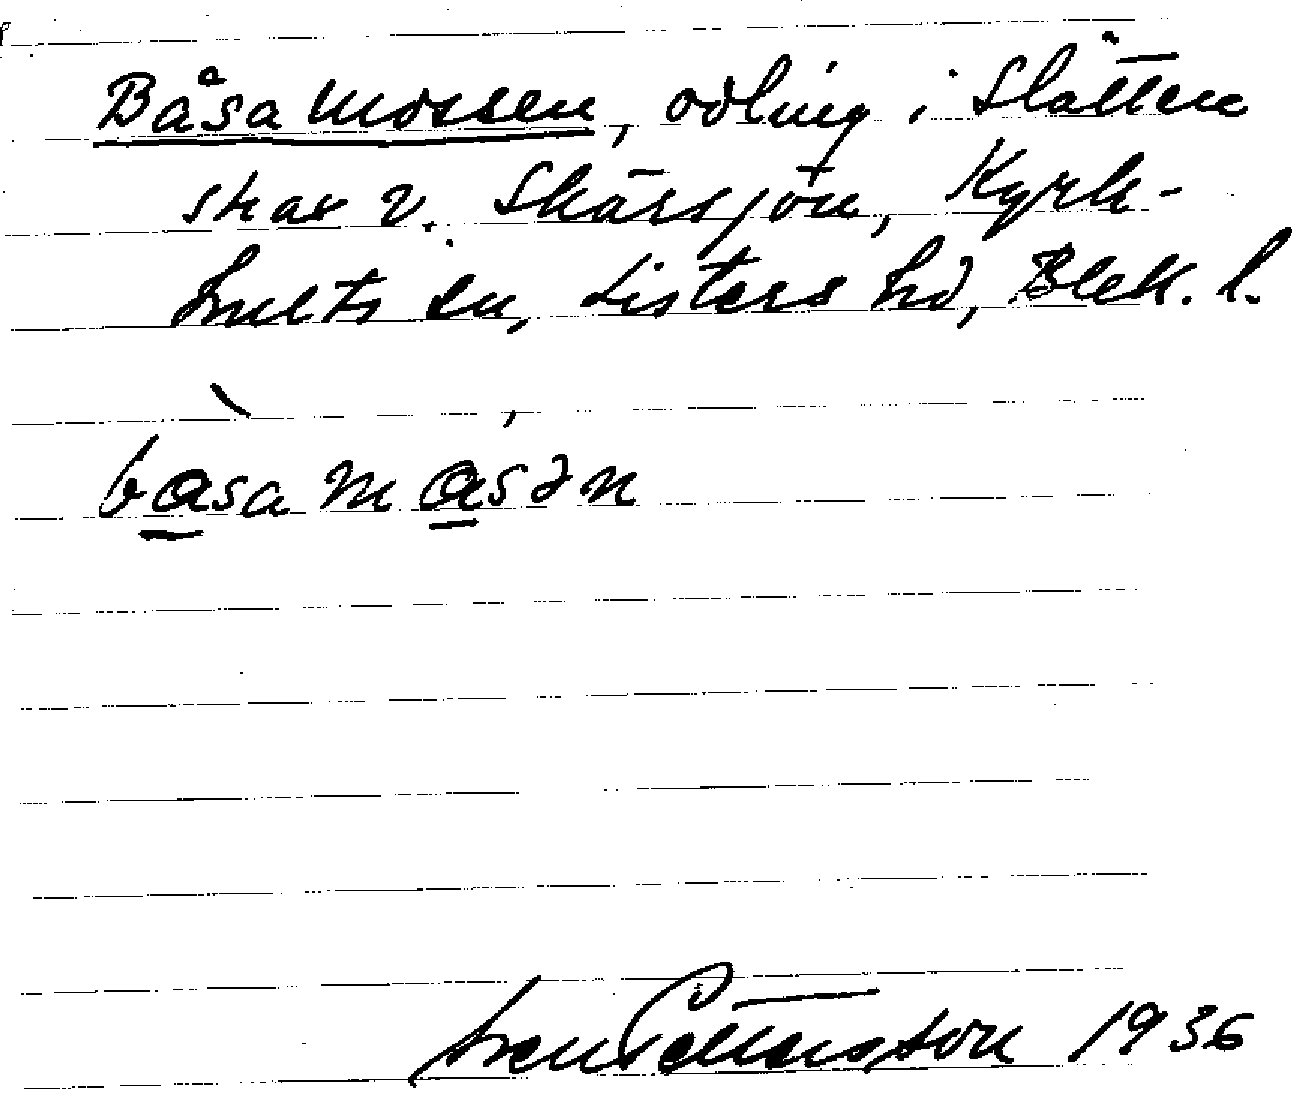 Båsamossen, odling i Slätten
skav v. Skärsjön, Kyrk-
hults sn, Listers hd, Blek. l.
båsamåsən
Sven Pettersson 1936